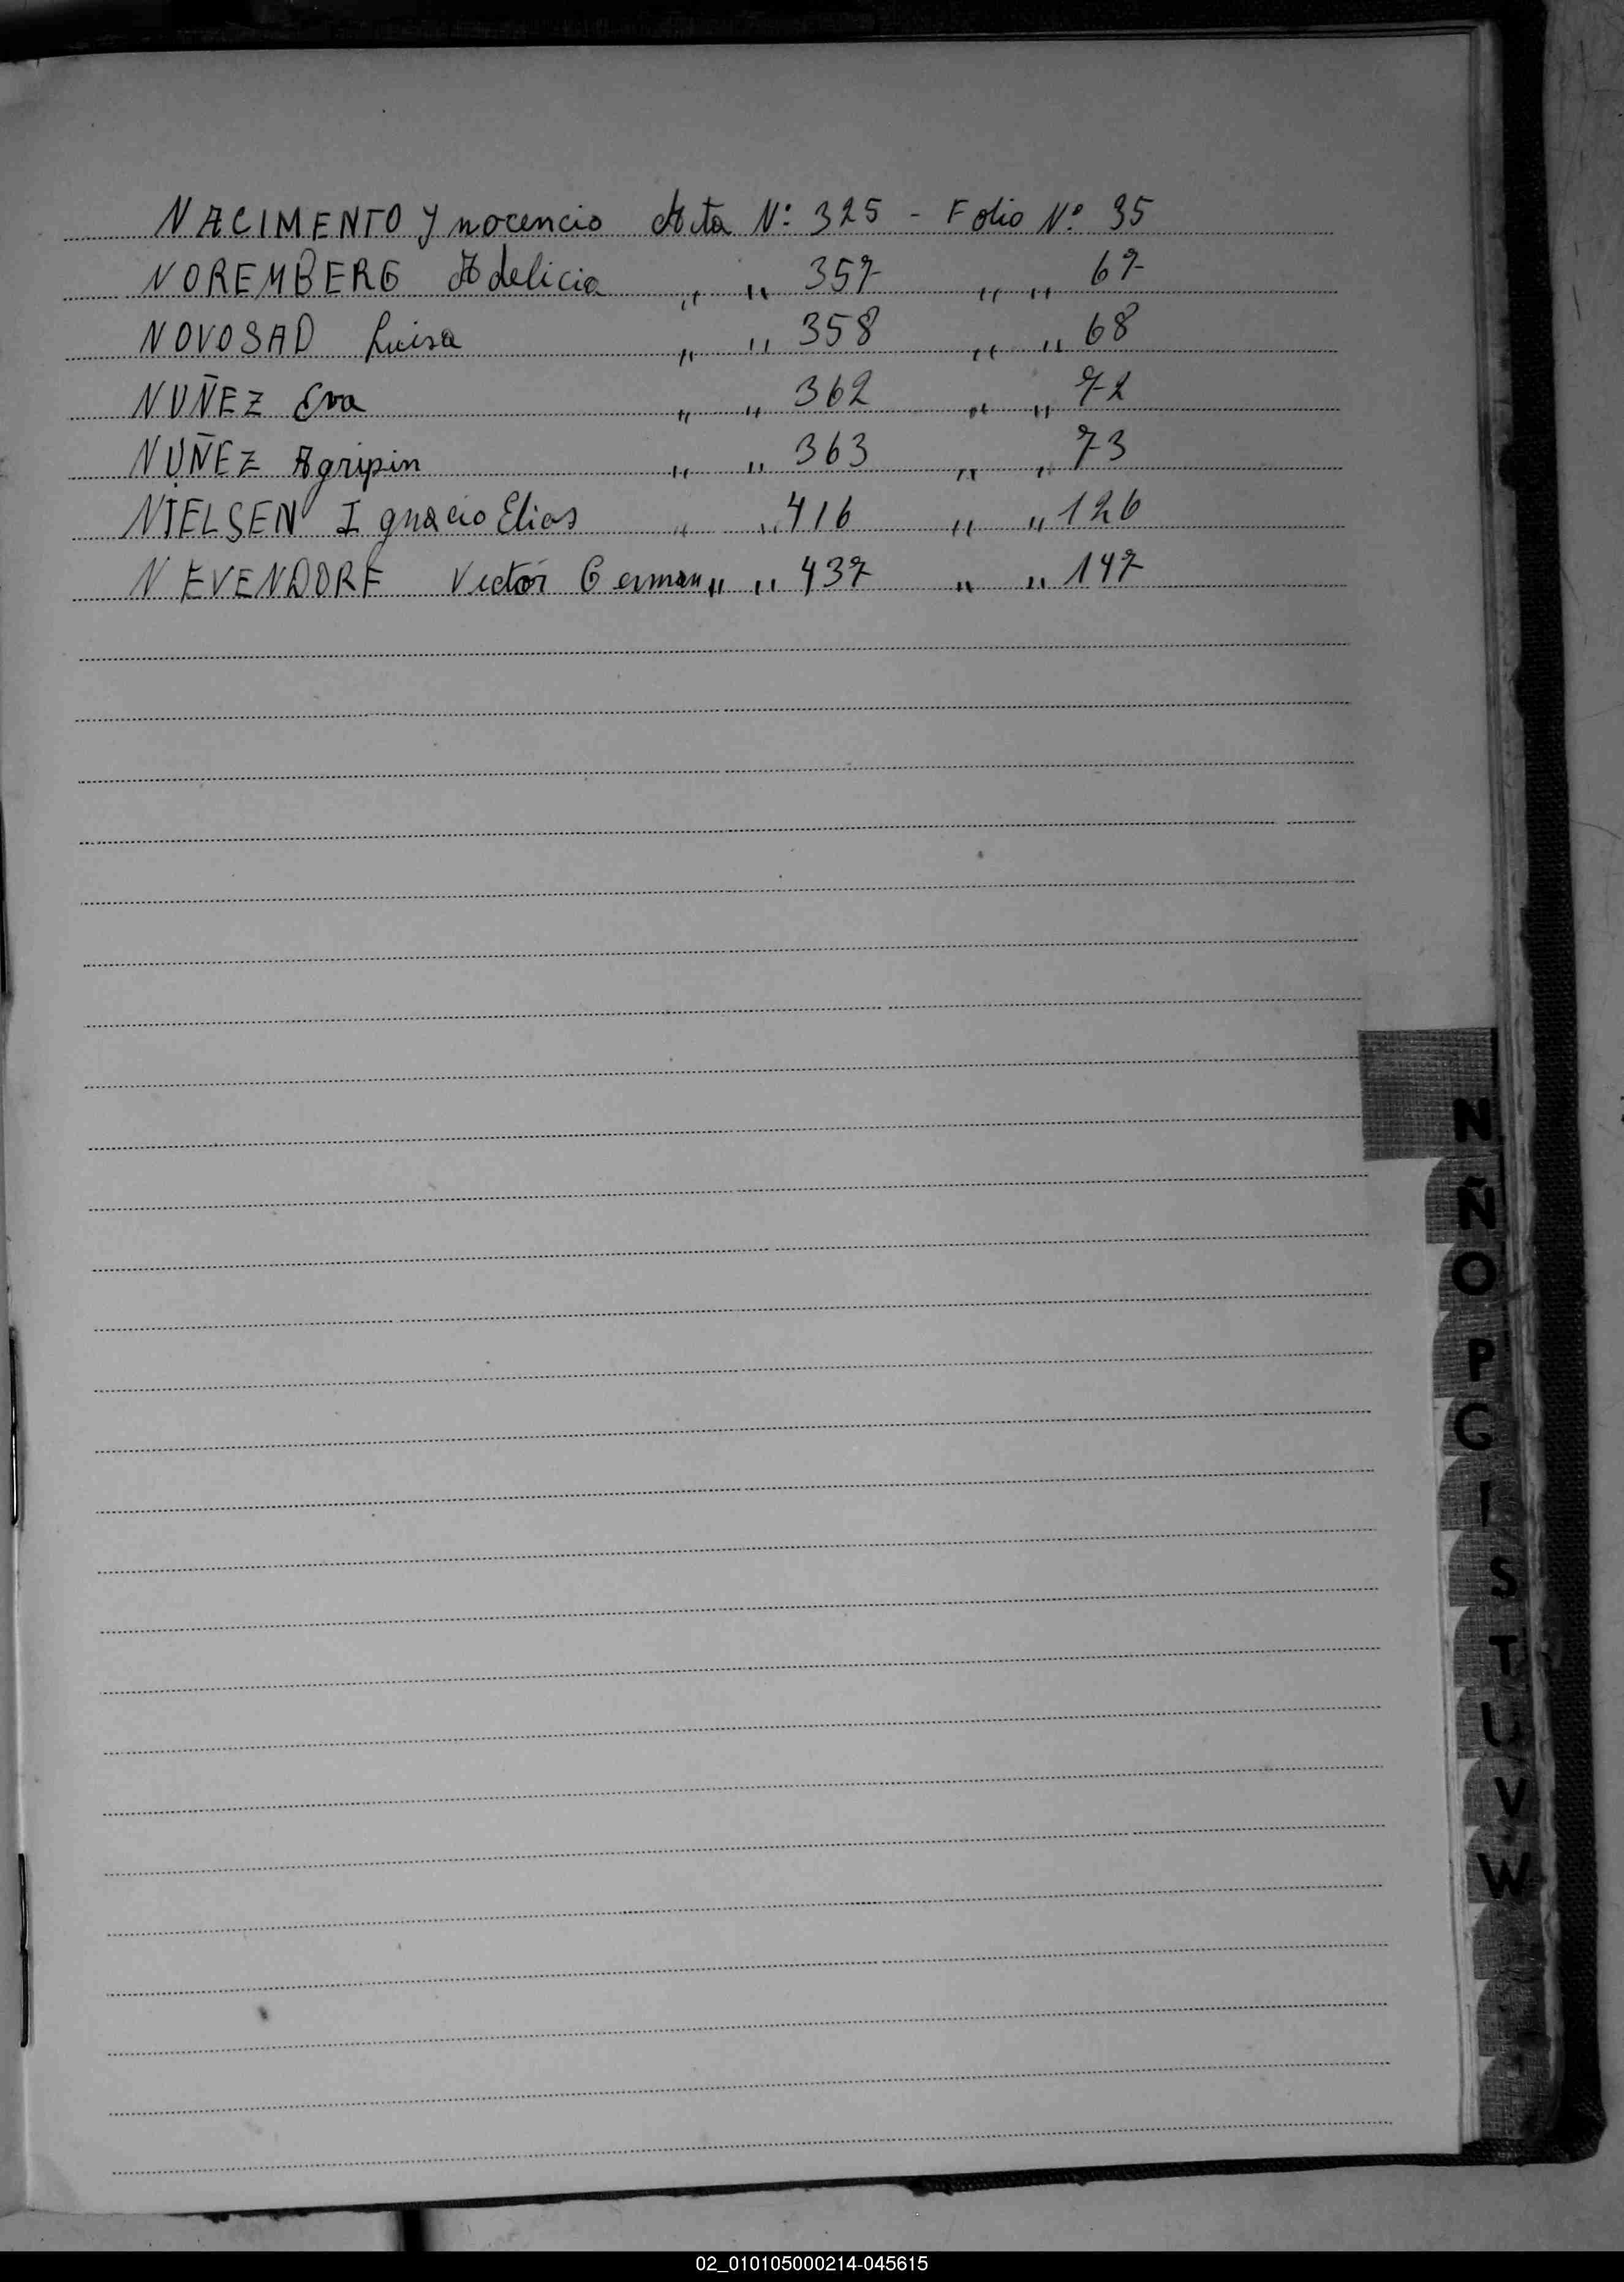 NACIMENTO Ynocencio Acta Nº 325 - Folio Nº 35
NOREMBERG Adelicia " " 357 " " 67
NOVOSAD Luisa " " 358 " " 68
NUÑEZ Eva " " 362 " " 72
NUÑEZ Agripin " " 363 " " 73
NIELSEN Ignacio Elias " " 416 " " 126
NEVENDORF Victor German " " 437 " " 147
N
Ñ
O
P
S
T
U
V
W
02_010105000214-045615